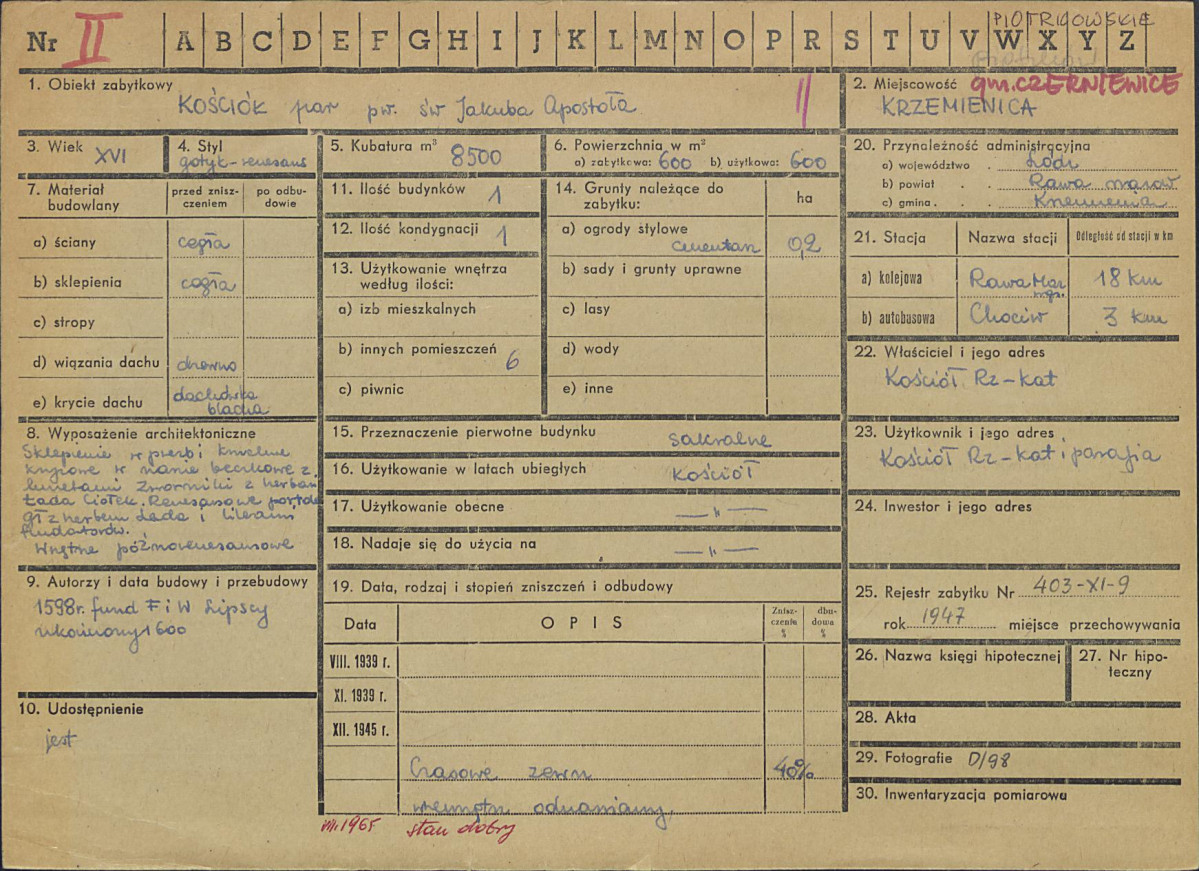 PIOTRKOWSKIE
Nr II A B C D E F G H I J K L M N O P R S T U V W X Y Z
1. Obiekt zabytkowy
KOŚCIÓŁ par pw. św Jakuba Apostoła II
2. Miejscowość gm. CZERNIEWICE
KRZEMIENICA
3. Wiek XVI
4. Styl
gotyk-renesans
5. Kubatura m³ 8500
6. Powierzchnia w m²
a) zabytkowa: 600 b) użytkowa: 600
20. Przynależność administracyjna
a) województwo . Łódź
b) powiat . . Rawa mazow
c) gmina . . .
7. Materiał budowlany
przed znisz-czeniem
po odbu-dowie
a) ściany cegła
b) sklepienia cegła
c) stropy
d) wiązania dachu drewno
e) krycie dachu dachówka
blacha
11. Ilość budynków 1
12. Ilość kondygnacji 1
13. Użytkowanie wnętrza
według ilości:
a) izb mieszkalnych
b) innych pomieszczeń 6
c) piwnic
14. Grunty należące do
zabytku:
ha
a) ogrody stylowe
cmentarz 0,2
b) sady i grunty uprawne
c) lasy
d) wody
e) inne
21. Stacja Nazwa stacji Odległość od stacji w km
a) kolejowa Rawa Maz 18 km
b) autobusowa Chociw 3 km
22. Właściciel i jego adres
Kościół Rz-kat
8. Wyposażenie architektoniczne
Sklepienie w prezbi kolebne
krzyżowe w nawie beczkowe z
lunetami Zworniki z herbam
Łada Ciołek. Renesansowe portale
gł z herbem Łada i literami
fundatorów.
Wnętrze późnorenesansowe
15. Przeznaczenie pierwotne budynku sakralne
16. Użytkowanie w latach ubiegłych kościół
17. Użytkowanie obecne —"—
18. Nadaje się do użycia na —"—
23. Użytkownik i jego adres
Kościół Rz-kat i parafia
24. Inwestor i jego adres
9. Autorzy i data budowy i przebudowy
1598r. fund F i W Lipscy
ukończony 1600
10. Udostępnienie
jest
19. Data, rodzaj i stopień zniszczeń i odbudowy
Data OPIS Znisz-czenia % dbu-dowa %
VIII. 1939 r.
XI. 1939 r.
XII. 1945 r.
Czasowe zewn 40%
wewnątrz odnawiany,
VIII.1965 stan dobry
25. Rejestr zabytku Nr 403-XI-9
rok 1947 miejsce przechowywania
26. Nazwa księgi hipotecznej
27. Nr hipo-
teczny
28. Akta
29. Fotografie D/98
30. Inwentaryzacja pomiarowa